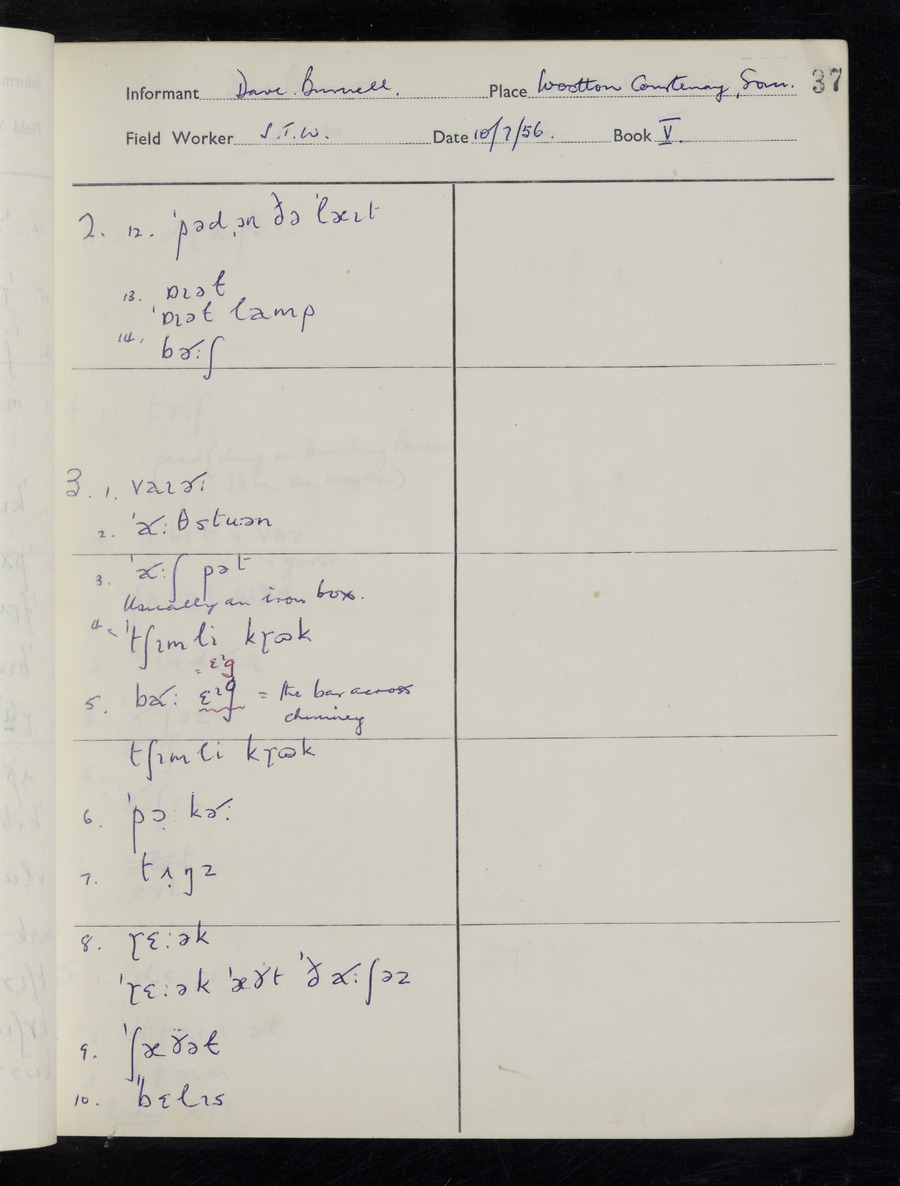 Informant Dave Burnell. Place Wootton Courtenay, Som. 37
Field Worker S.T.W. Date 10/7/56. Book V.
2. 12. ˈpədˌən ðə ˈlæɪt
13.
lamp
14. bɚ:ʃ
3. 1. vaɪɚ:
2. ˈɚ:θstuən
3. ˈɚ:ʃ pət
Usually an iron box.
4. ˈtʃɪmli kɽɷk
= ɛɪg
5. bɚ: ɛɪg = the bar across
chimney
tʃɪmli kɽɷk
6. ˈpɔ kɚ:
7. tɪŋz
8. ɽɛ:ək
ˈɽɛ:ək ˈæɤt ˈð ɚ:ʃəz
9. ˈʃæɤət
10. ˈbɛlɪs